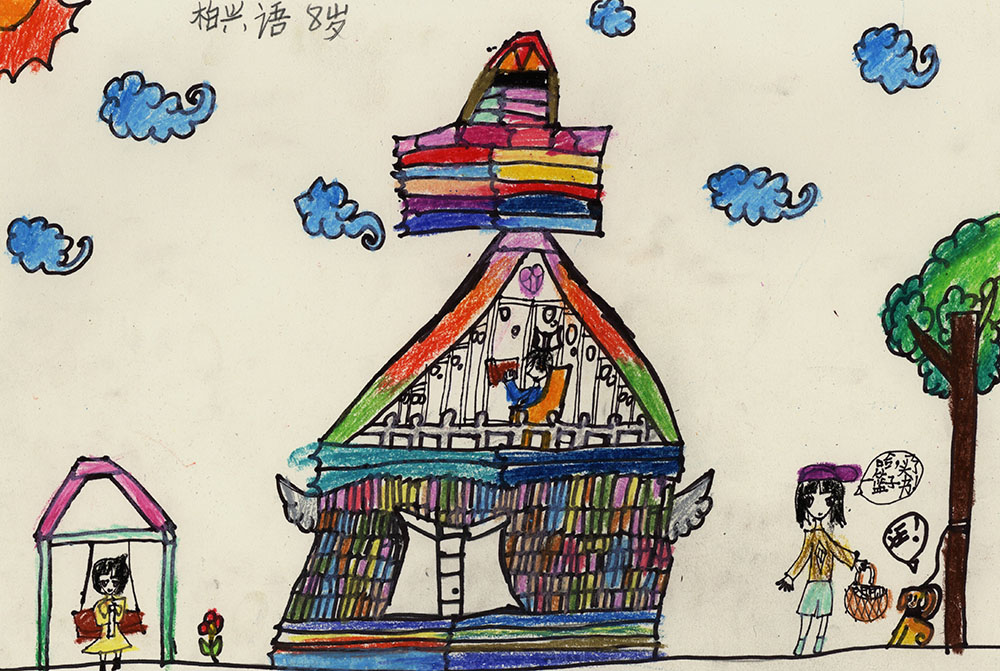 柏兴语 8岁
哈,买了
一篮子书!
汪!